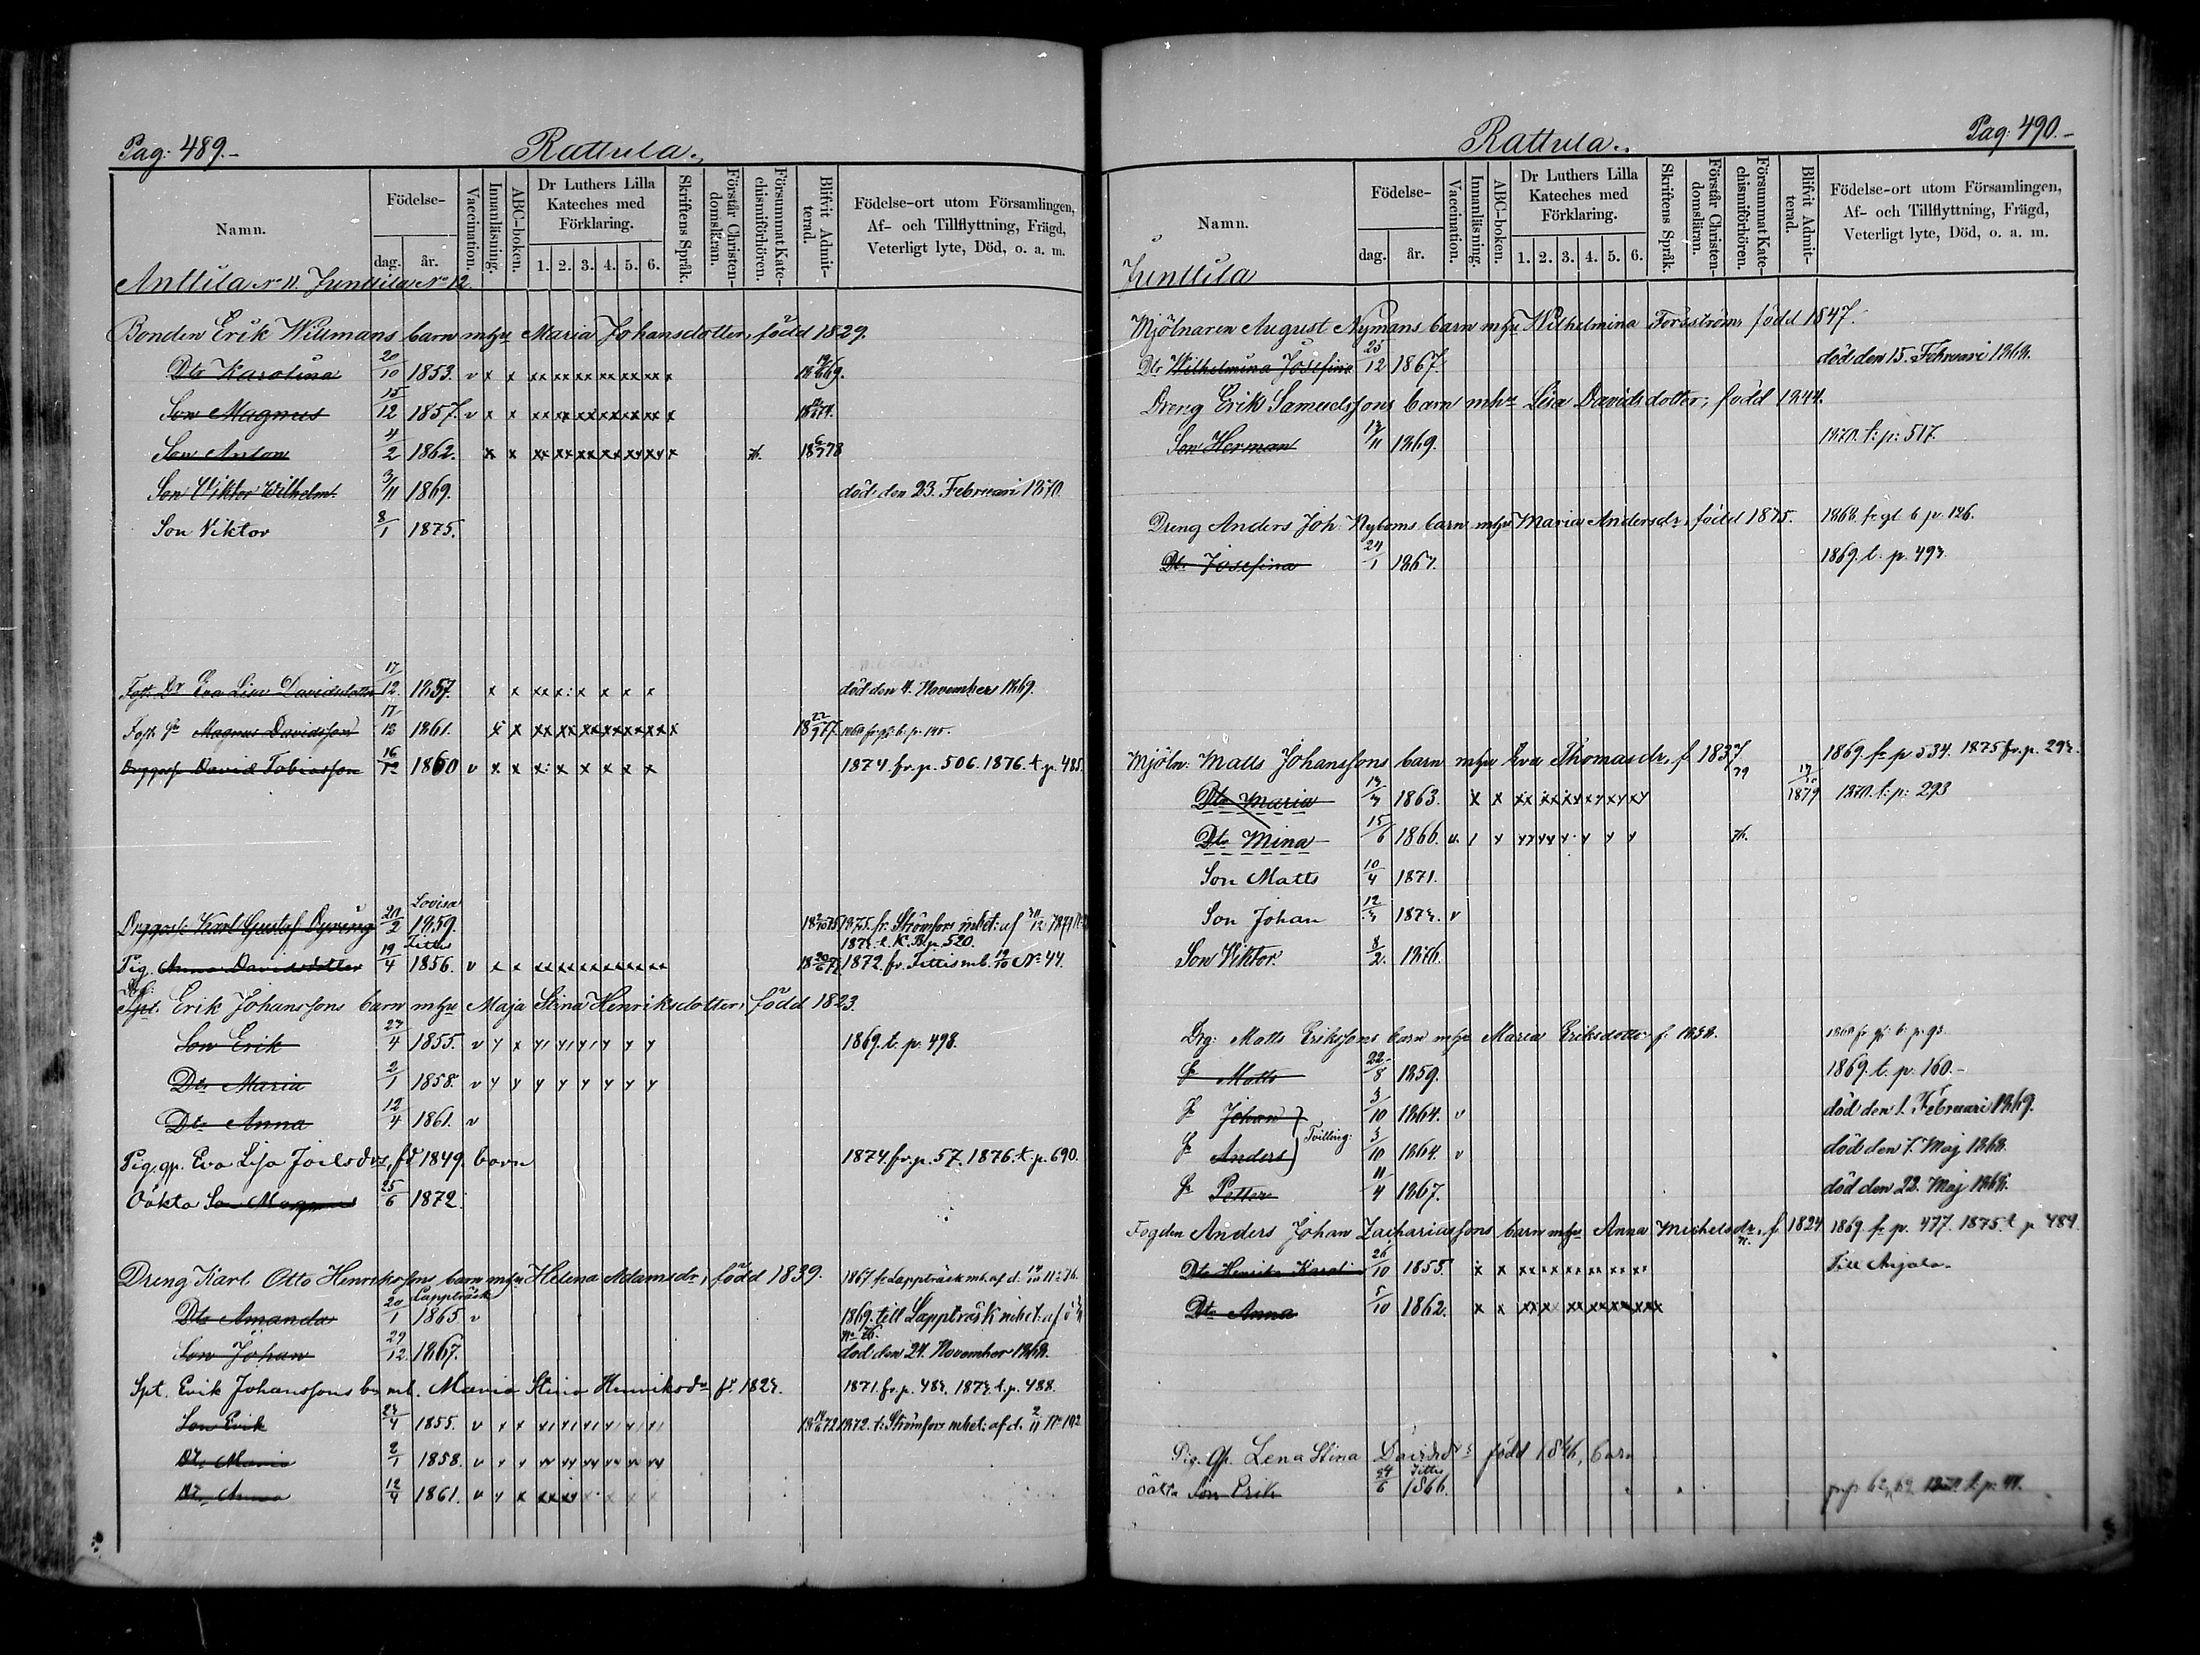 Pag: 489.-
Rattula.
Namn.
Födelse-
dag.
år.
Vaccination.
Innanläsning.
ABC-boken.
Dr Luthers Lilla Kateches med Förklaring.
1. 2. 3. 4. 5. 6.
Skriftens Språk.
Förstår Christendomsläran.
Försummat Katechismiförhören.
Blifvit Admitterad.
Födelse-ort utom Församlingen,
Af- och Tillflyttning, Frägd,
Veterligt lyte, Död, o. a. m.
Anttila No 11. Junttila No 12
Bonden Erik Willmans barn mhu Maria Johansdotter, född 1829.
Dtr Karolina 20/10 1853. v x x
Son Magnus 15/12 1857. v x x
Son Anton 4/2 1862. x x 78
Son Viktor Wilhelm. 3/11 1869. död den 23. Februari 1870.
Son Viktor 8/1 1875.
Fost. Dr Eva Lisa Davidsdotter 17/12 1857. x x död den 4. November 1869.
Fost. Sn Magnus Davidsson 17/12 1861. x x
David Tobiasson 16/12 1860 v x x 1874. fr. p. 506. 1876. t. p. 485.
Lovisa
Karl Gustaf Dyring 2 1859. 1875. fr. Strömfors
p. 520.
Tittis
Pig. Anna Davidsdotter 19/4 1856. v x x 1872. fr. Tittis mb. 19/10 No 44.
Erik Johanssons barn mhu Maja Stina Henriksdotter, född 1823.
Son Erik 27/4 1855. v 1869. t. p. 498.
Dtr Maria 2/1 1858. v
Dtr Anna 12/4 1861. v
Pig. gp. Eva Lisa Joelsdrs, fd 1849. barn 1874. fr. p. 57. 1876. t. p. 690.
Oäkta Son Magnus 25/6 1872.
Dreng Karl Otto Henrikssons barn mhu Helena Adamsdr, född 1839. 1867. fr Lappträsk
Lappträsk
Dtr Amanda 20/1 1865 v 1869. till Lappträsk
Son Johan 29/12 1867. död den 24. November 1868.
Spt. Erik Johanssons Maria Stina Henriksdr fd 1823. 1871. fr. p. 483. 1873. t. p. 488.
Son Erik 27/4 1855. v 1872. t. Strömfors
Dtr Maria 2/1 1858. v
Dtr Anna 12/4 1861. v
Pag: 490.-
Rattula.
Namn.
Födelse-
dag.
år.
Vaccination.
Innanläsning.
ABC-boken.
Dr Luthers Lilla Kateches med Förklaring.
1. 2. 3. 4. 5. 6.
Skriftens Språk.
Förstår Christendomsläran.
Försummat Katechismiförhören.
Blifvit Admitterad.
Födelse-ort utom Församlingen,
Af- och Tillflyttning, Frägd,
Veterligt lyte, Död, o. a. m.
Junttila
Mjölnaren August Nymans barn mhu Wilhelmina Forsström, född 1847.
Dtr Wilhelmina Josefina 25/12 1867 död den 15. Februari 1868.
Dreng Erik Samuelssons barn mhu Lisa Davidsdotter, född 1844.
Son Herman 13/11 1869. 1870. t: p: 517.
Dreng Anders Joh. Nyboms barn mhu Maria Andersdr, född 1875. 1868. fr gl. b p. 126.
Dtr Josefina 24/1 1867. 1869. t. p. 493.
Mjöln. Matts Johanssons barn mhu Eva Thomasdr, f. 1837 1869. fr p 534. 1875 fr. p. 293.
Dtr Maria 1863. x x 1879 1870. t: p: 293
Dtr Mina 15/6 1866. v.
Son Matts 10/4 1871.
Son Johan 12/3 1873. v
Son Viktor. 8/2. 1876.
Drg: Matts Erikssons barn mhu Maria Eriksdotter f.
Matts 22/8 1859. 1869. t. p. 160.-
Johan 3/10 1864. v död den 1. Februari 1869.
Tvilling:
Anders 3/10 1864. v död den 7. Maj 1868.
Petter 11/4 1867. död den 22. Maj 1868.
Fogden Anders Johan Zachariassons barn mhu Anna Michelsdr, f. 1824 1869. fr p. 477. 1875. t. p. 489.
Dtr Henrika Karol. 26/10 1855. x x Till Anjala.
Dtr Anna 5/10 1862. x x
Pig. gp. Lena Stina Davidsdrs född 1846, barn
Tittis
oäkta Son Erik 24/6 1866.